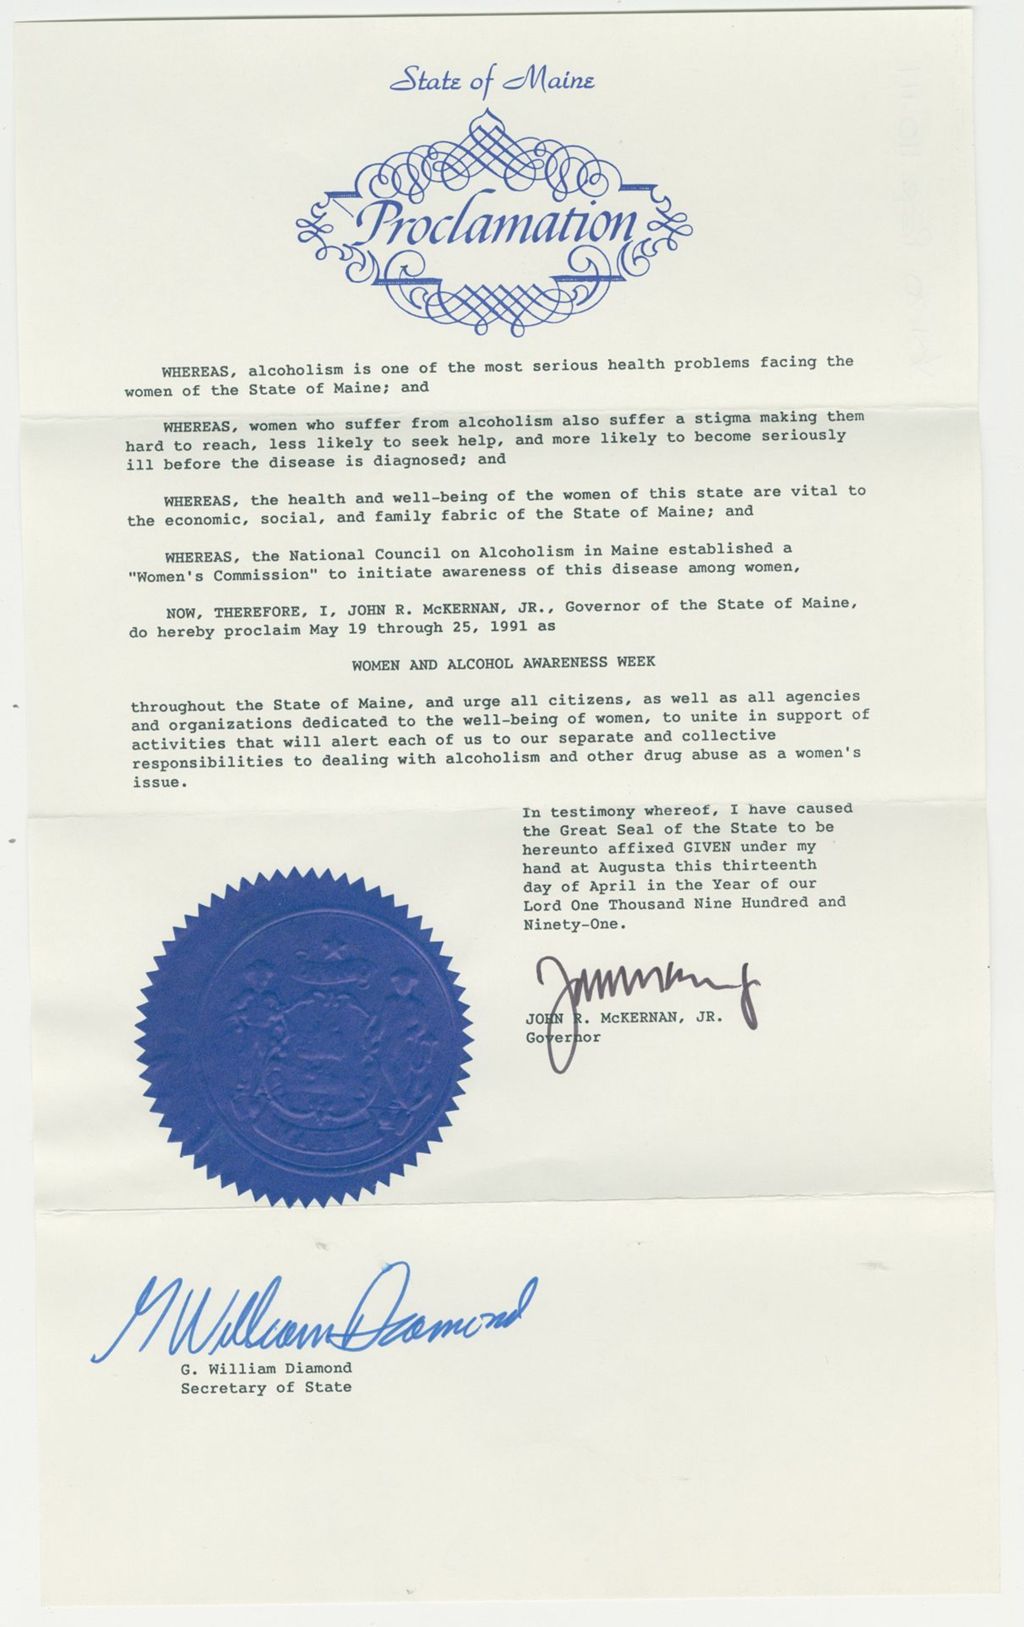 State of Maine
Proclamation
WHEREAS, alcoholism is one of the most serious health problems facing the
women of the State of Maine; and
WHEREAS, women who suffer from alcoholism also suffer a stigma making them
hard to reach, less likely to seek help, and more likely to become seriously
ill before the disease is diagnosed; and
WHEREAS, the health and well-being of the women of this state are vital to
the economic, social, and family fabric of the State of Maine; and
WHEREAS, the National Council on Alcoholism in Maine established a
"Women's Commission" to initiate awareness of this disease among women,
NOW, THEREFORE, I, JOHN R. McKERNAN, JR., Governor of the State of Maine,
do hereby proclaim May 19 through 25, 1991 as
WOMEN AND ALCOHOL AWARENESS WEEK
throughout the State of Maine, and urge all citizens, as well as all agencies
and organizations dedicated to the well-being of women, to unite in support of
activities that will alert each of us to our separate and collective
responsibilities to dealing with alcoholism and other drug abuse as a women's
issue.
In testimony whereof, I have caused
the Great Seal of the State to be
hereunto affixed GIVEN under my
hand at Augusta this thirteenth
day of April in the Year of our
Lord One Thousand Nine Hundred and
Ninety-One.
JOHN R. McKERNAN, JR.
Governor
G William Diamond
G. William Diamond
Secretary of State